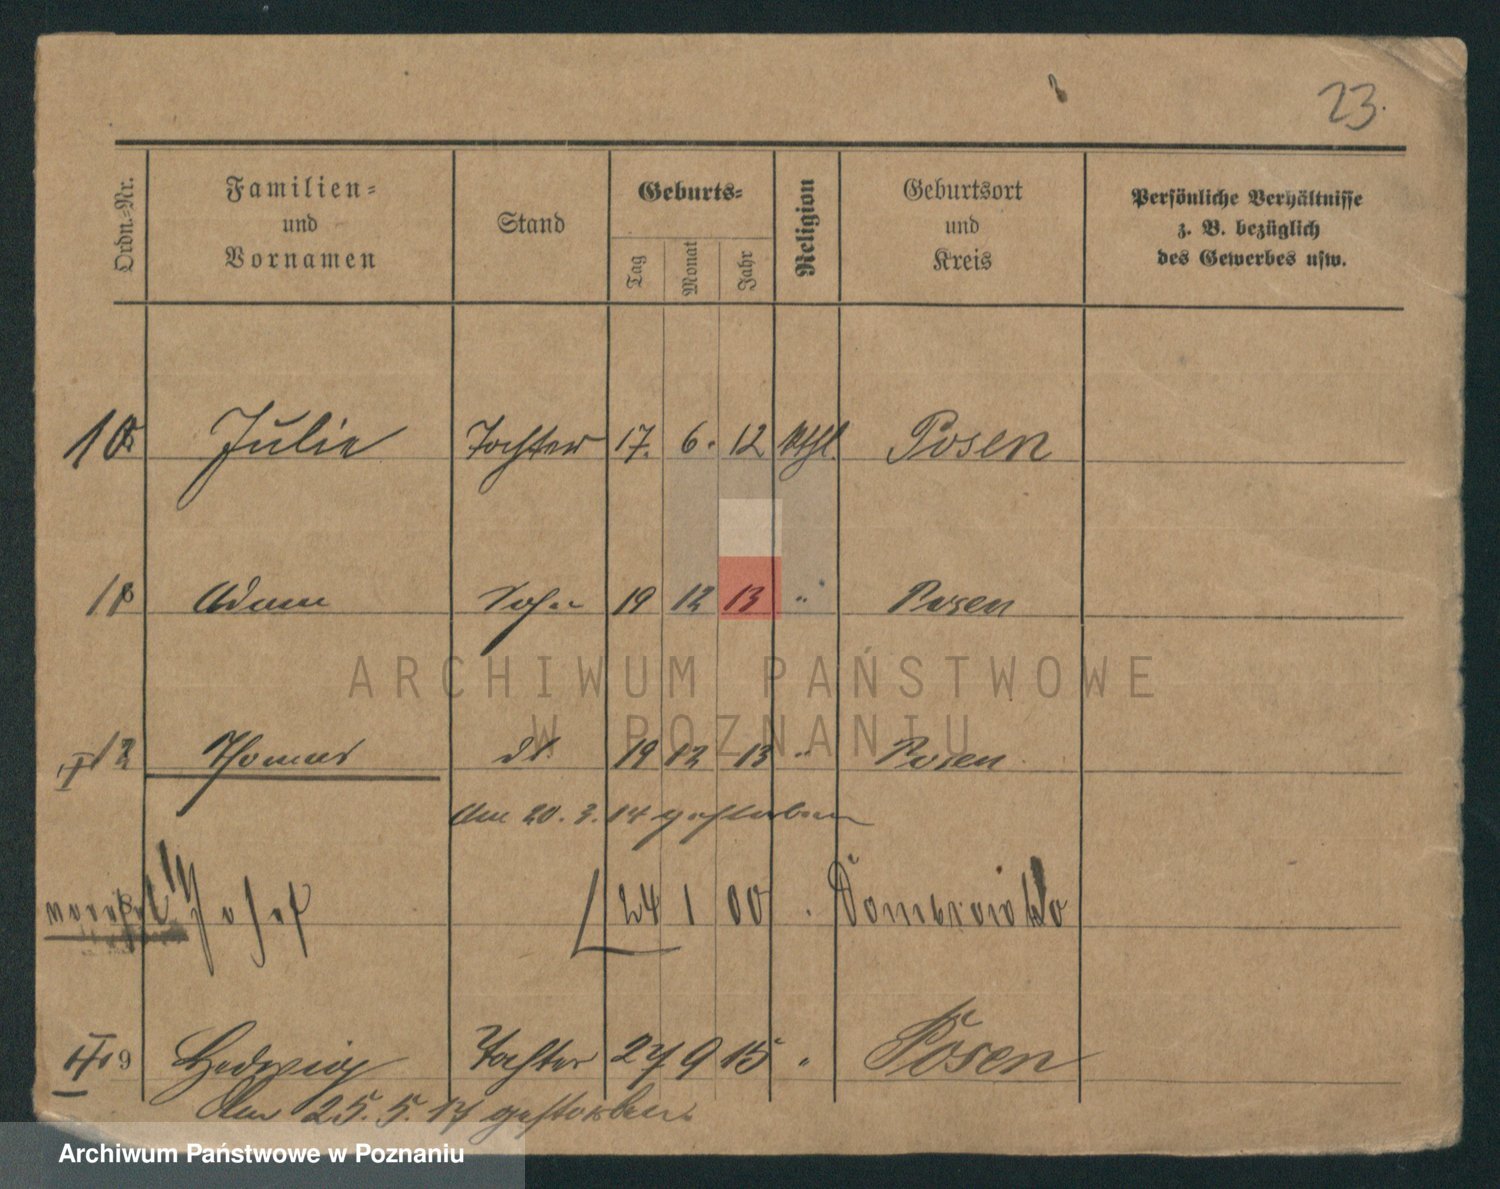 23.
Ordn.-Nr.
Familien-
und
Vornamen
Stand
Geburts-
Tag
Monat
Jahr
Religion
Geburtsort
und
Kreis
Persönliche Verhältnisse
z. B. bezüglich
des Gewerbes usw.
10 Julie Tochter 17. 6. 12 kthl. Posen
Adam Sohn 19 12 13 " Posen
12 Thomas dt. 19 12 13 " Posen
Am 20. 3. 14 gestorben
Josef 24 1 00 Dombrowko
9 Hedwig Tochter 27 9 15 " Posen
Am 25. 5. 17 gestorben
ARCHIWUM PAŃSTWOWE
W POZNANIU
Archiwum Państwowe w Poznaniu